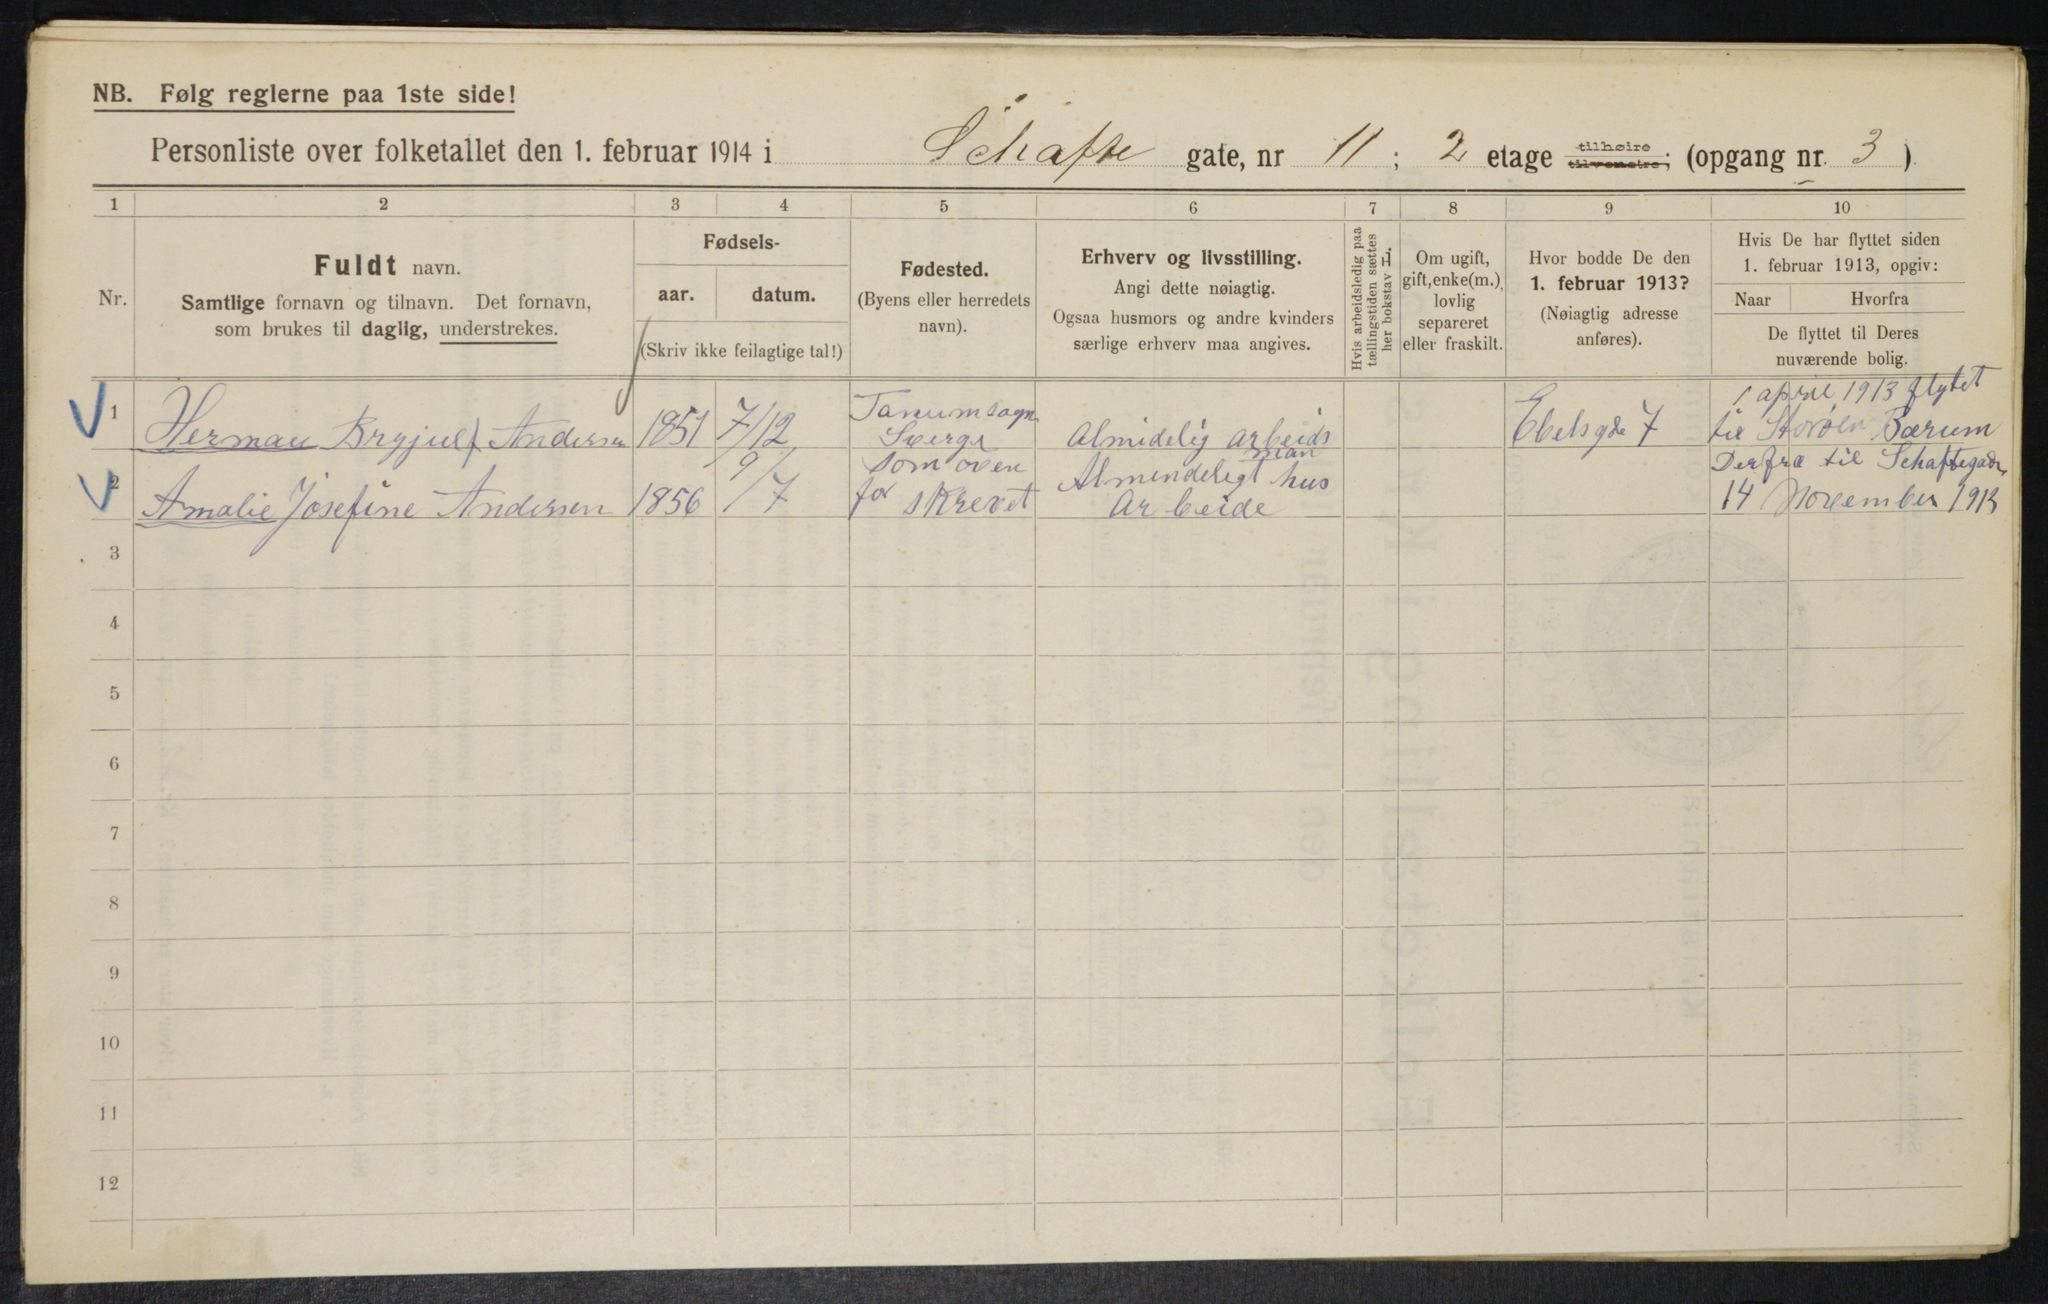 NB. Følg reglerne paa 1ste side!
Personliste over folketallet den 1. februar 1914 i Schafte gate, nr 11 ; 2 etage tilhøire tilvenstre; (opgang nr. 3 )
1 2 3 4 5 6 7 8 9 10
Nr.
Fuldt navn.
Samtlige fornavn og tilnavn. Det fornavn,
som brukes til daglig, understrekes.
Fødsels-
aar. datum.
(Skriv ikke feilagtige tal!)
Fødested.
(Byens eller herredets
navn).
Erhverv og livsstilling.
Angi dette nøiagtig.
Ogsaa husmors og andre kvinders
særlige erhverv maa angives.
Hvis arbeidsledig paa
tællingstiden sættes
her bokstav L.
Om ugift,
gift, enke(m.),
lovlig
separeret
eller fraskilt.
Hvor bodde De den
1. februar 1913?
(Nøiagtig adresse
anføres).
Hvis De har flyttet siden
1. februar 1913, opgiv:
Naar Hvorfra
De flyttet til Deres
nuværende bolig.
1 Herman Bryjulf Andersen 1851 7/12
Tanumsogn
Sverge
Almidelig arbeids
man
Ebelsgde 7
1 april 1913 flytet
til Storøen Bærum
2 Amalie Josefine Andersen 1856 9/7
som oven
for skrevet
Almendeligt hus
Arbeide
Derfra til Schaftegaden
14 November 1913
3
4
5
6
7
8
9
10
11
12